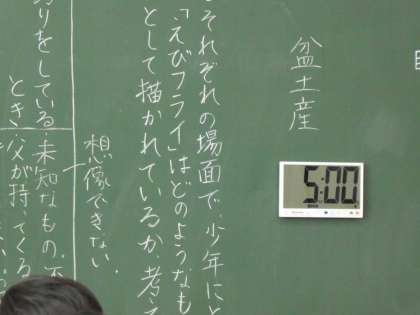 盆土産
5:00
それぞれの場面で、少年にと
「えびフライ」はどのようなも
として描かれているか、考え
想像できない。
未知なもの。不
りをしている
とき
父が持ってくる